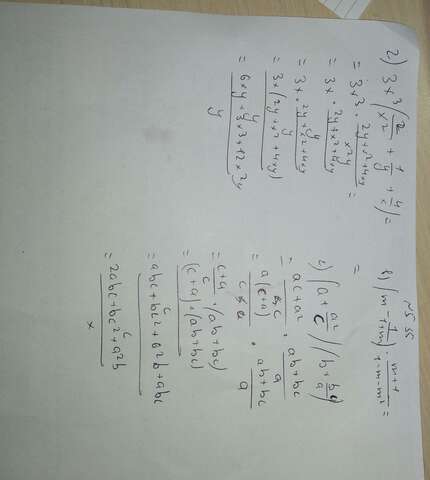 2) 3x³(2/x² + 1/y + 4/x) =
= 3x³ · (2y+x²+4xy)/(x²y) =
= 3x · (2y+x²+4xy)/y
= 3x · (2y+x²+4xy)/y
= 3x(2y+x²+4xy)/y
= (6xy+3x³+12x²y)/y
b) (m - 1/(1+m)) · (m+1)/(1-m-m²) =
=
c) (a + a²/c)(b + bc/a)
= (ac+a²)/c · (ab+bc)/a
= a(c+a)/c · (ab+bc)/a
= (c+a)/c · (ab+bc)
= (c+a)·(ab+bc)/c
= (abc+bc²+a²b+abc)/c
= (2abc+bc²+a²b)/c